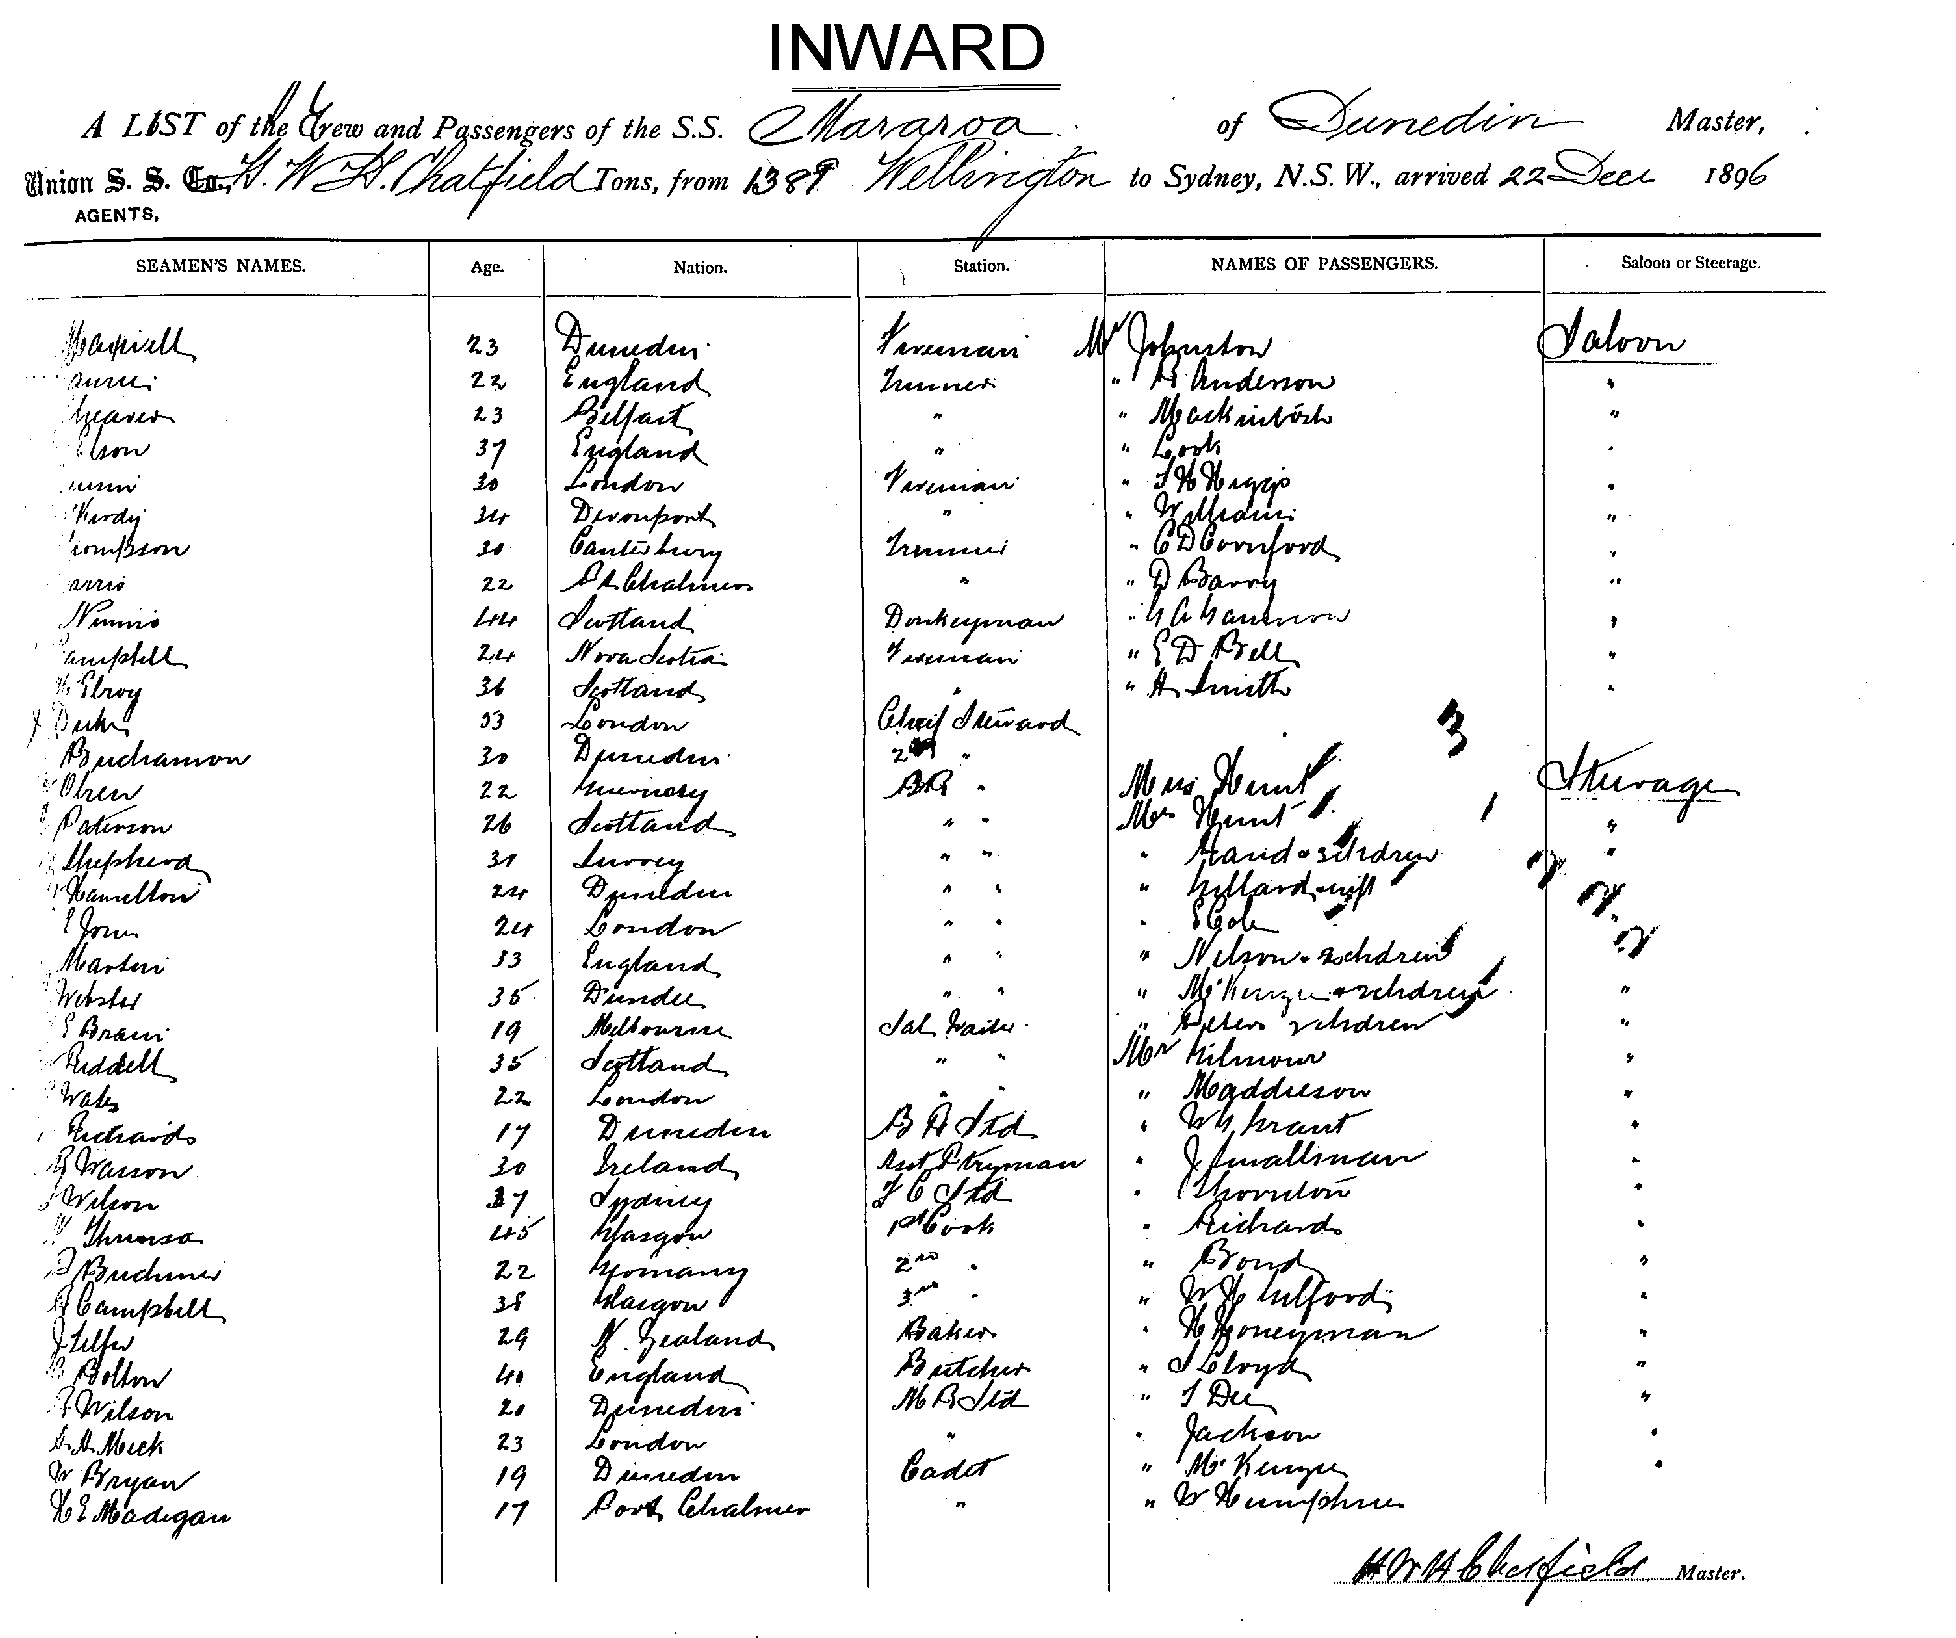 INWARD
A LIST of the Crew and Passengers of the S.S. Mararoa of Dunedin Master,
Union S. S. Co., H. W. H. Chatfield Tons, from 1389 Wellington to Sydney, N.S.W., arrived 22 Dec 1896
AGENTS,
SEAMEN'S NAMES. Age. Nation. Station. NAMES OF PASSENGERS. Saloon or Steerage.
Maxwell 23 Dunedin Fireman Mr Johnston Saloon
22 England Trimmer " Anderson "
23 Belfast " " Mackintosh "
elson 37 England " " Cook "
30 London Fireman " Higgs "
34 Devonport " " Williams "
ompson 30 Canterbury Trimmer " C D Cornford "
arris 22 Pt Chalmers " " D Barry "
44 Scotland Donkeyman " "
ampbell 24 Nova Scotia Fireman " E D Bell "
Elroy 36 Scotland " " H Smith "
33 London Cheif Steward
3
Buchannon 30 Dunedin 2nd "
Olsen 22 Guernsey BR " Miss Hunt Steerage
Paterson 26 Scotland " " Mrs Hunt 1 "
Shepherd 31 Surrey " " " 3 chdren 3 "
Hamelton 24 Dunedin " " " 2
E Jones 24 London " " " E Cole 2
Martin 33 England " " " Nelson & 2 chdren
Webster 35 Dundee " " " McKenzie & 2 chdren "
E Brain 19 Melbourne Sal Waiter " 2 chdren "
Riddell 35 Scotland " " Mr Kilmour "
Wales 22 London " " " Maddieson "
Richards 17 Dunedin B R Std " W G Grant "
Wasson 30 Ireland Asst P tryman " J Smallman "
Wilson 37 Sydney F C Std " Thornton "
45 Glasgow 1st Cook " Richards "
22 Germany 2nd " " Bond "
Campbell 38 Glasgow 3rd " " "
J Telfer 29 N. Zealand Baker " H Honeyman "
Bolton 40 England Butcher " Lloyd "
Wilson 20 Dunedin M R Std " T Dee "
Meek 23 London " " Jackson "
W Bryan 19 Dunedin Cadet " McKenzie "
H E Madigan 17 Port Chalmers " " W Humphries
H W H Chatfield Master.